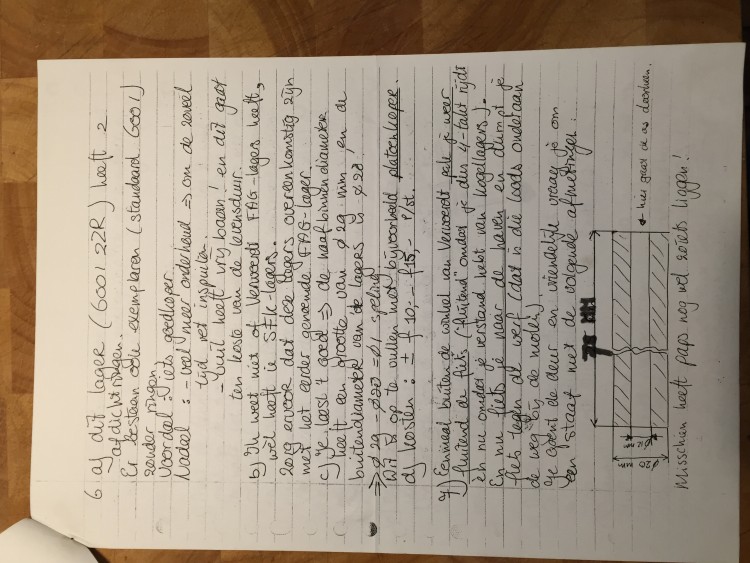 6 a) dit lager (6001 2ZR) heeft 2
afdichtringen.
Er bestaan ook exemplaren (standaard 6001)
zonder ringen
Voordeel : iets goedkoper
Nadeel : - veel meer onderhoud => om de zoveel
tijd vet inspuiten.
- vuil heeft vrij baan! en dit gaat
ten koste van de levensduur.
b) Ik weet niet of Vervoordt FAG-lagers heeft,
wél heeft ie SKF-lagers.
Zorg ervoor dat deze lagers overeenkomstig zijn
met het eerder genoemde FAG-lager.
c) Je leest 't goed => de naaf binnendiameter
heeft een grootte van ø 29 mm en de
buitendiameter van de lagers is ø 28!
=> ø 29 - ø 28 = ø 1 speling
Dit is op te vullen met bijvoorbeeld platenkoper.
d) kosten : ± f 10,- - f 15,- p/st.
7) Eenmaal buiten de winkel van Vervoordt pak je weer
fluitend de fiets ("fluitend" omdat je dus 4-takt rijdt
én nu omdat je verstand hebt van kogellagers).
En nu fiets je naar de haven en dumpt je
fiets tegen de werf (dat is die loods onderaan
de weg bij de molen)
Je opent de deur en vriendelijk vraag je om
een staaf met de volgende afmetingen:
ø 20 mm
ø 12 mm
← hier gaat de as doorheen.
Misschien heeft paps nog wel zoiets liggen!